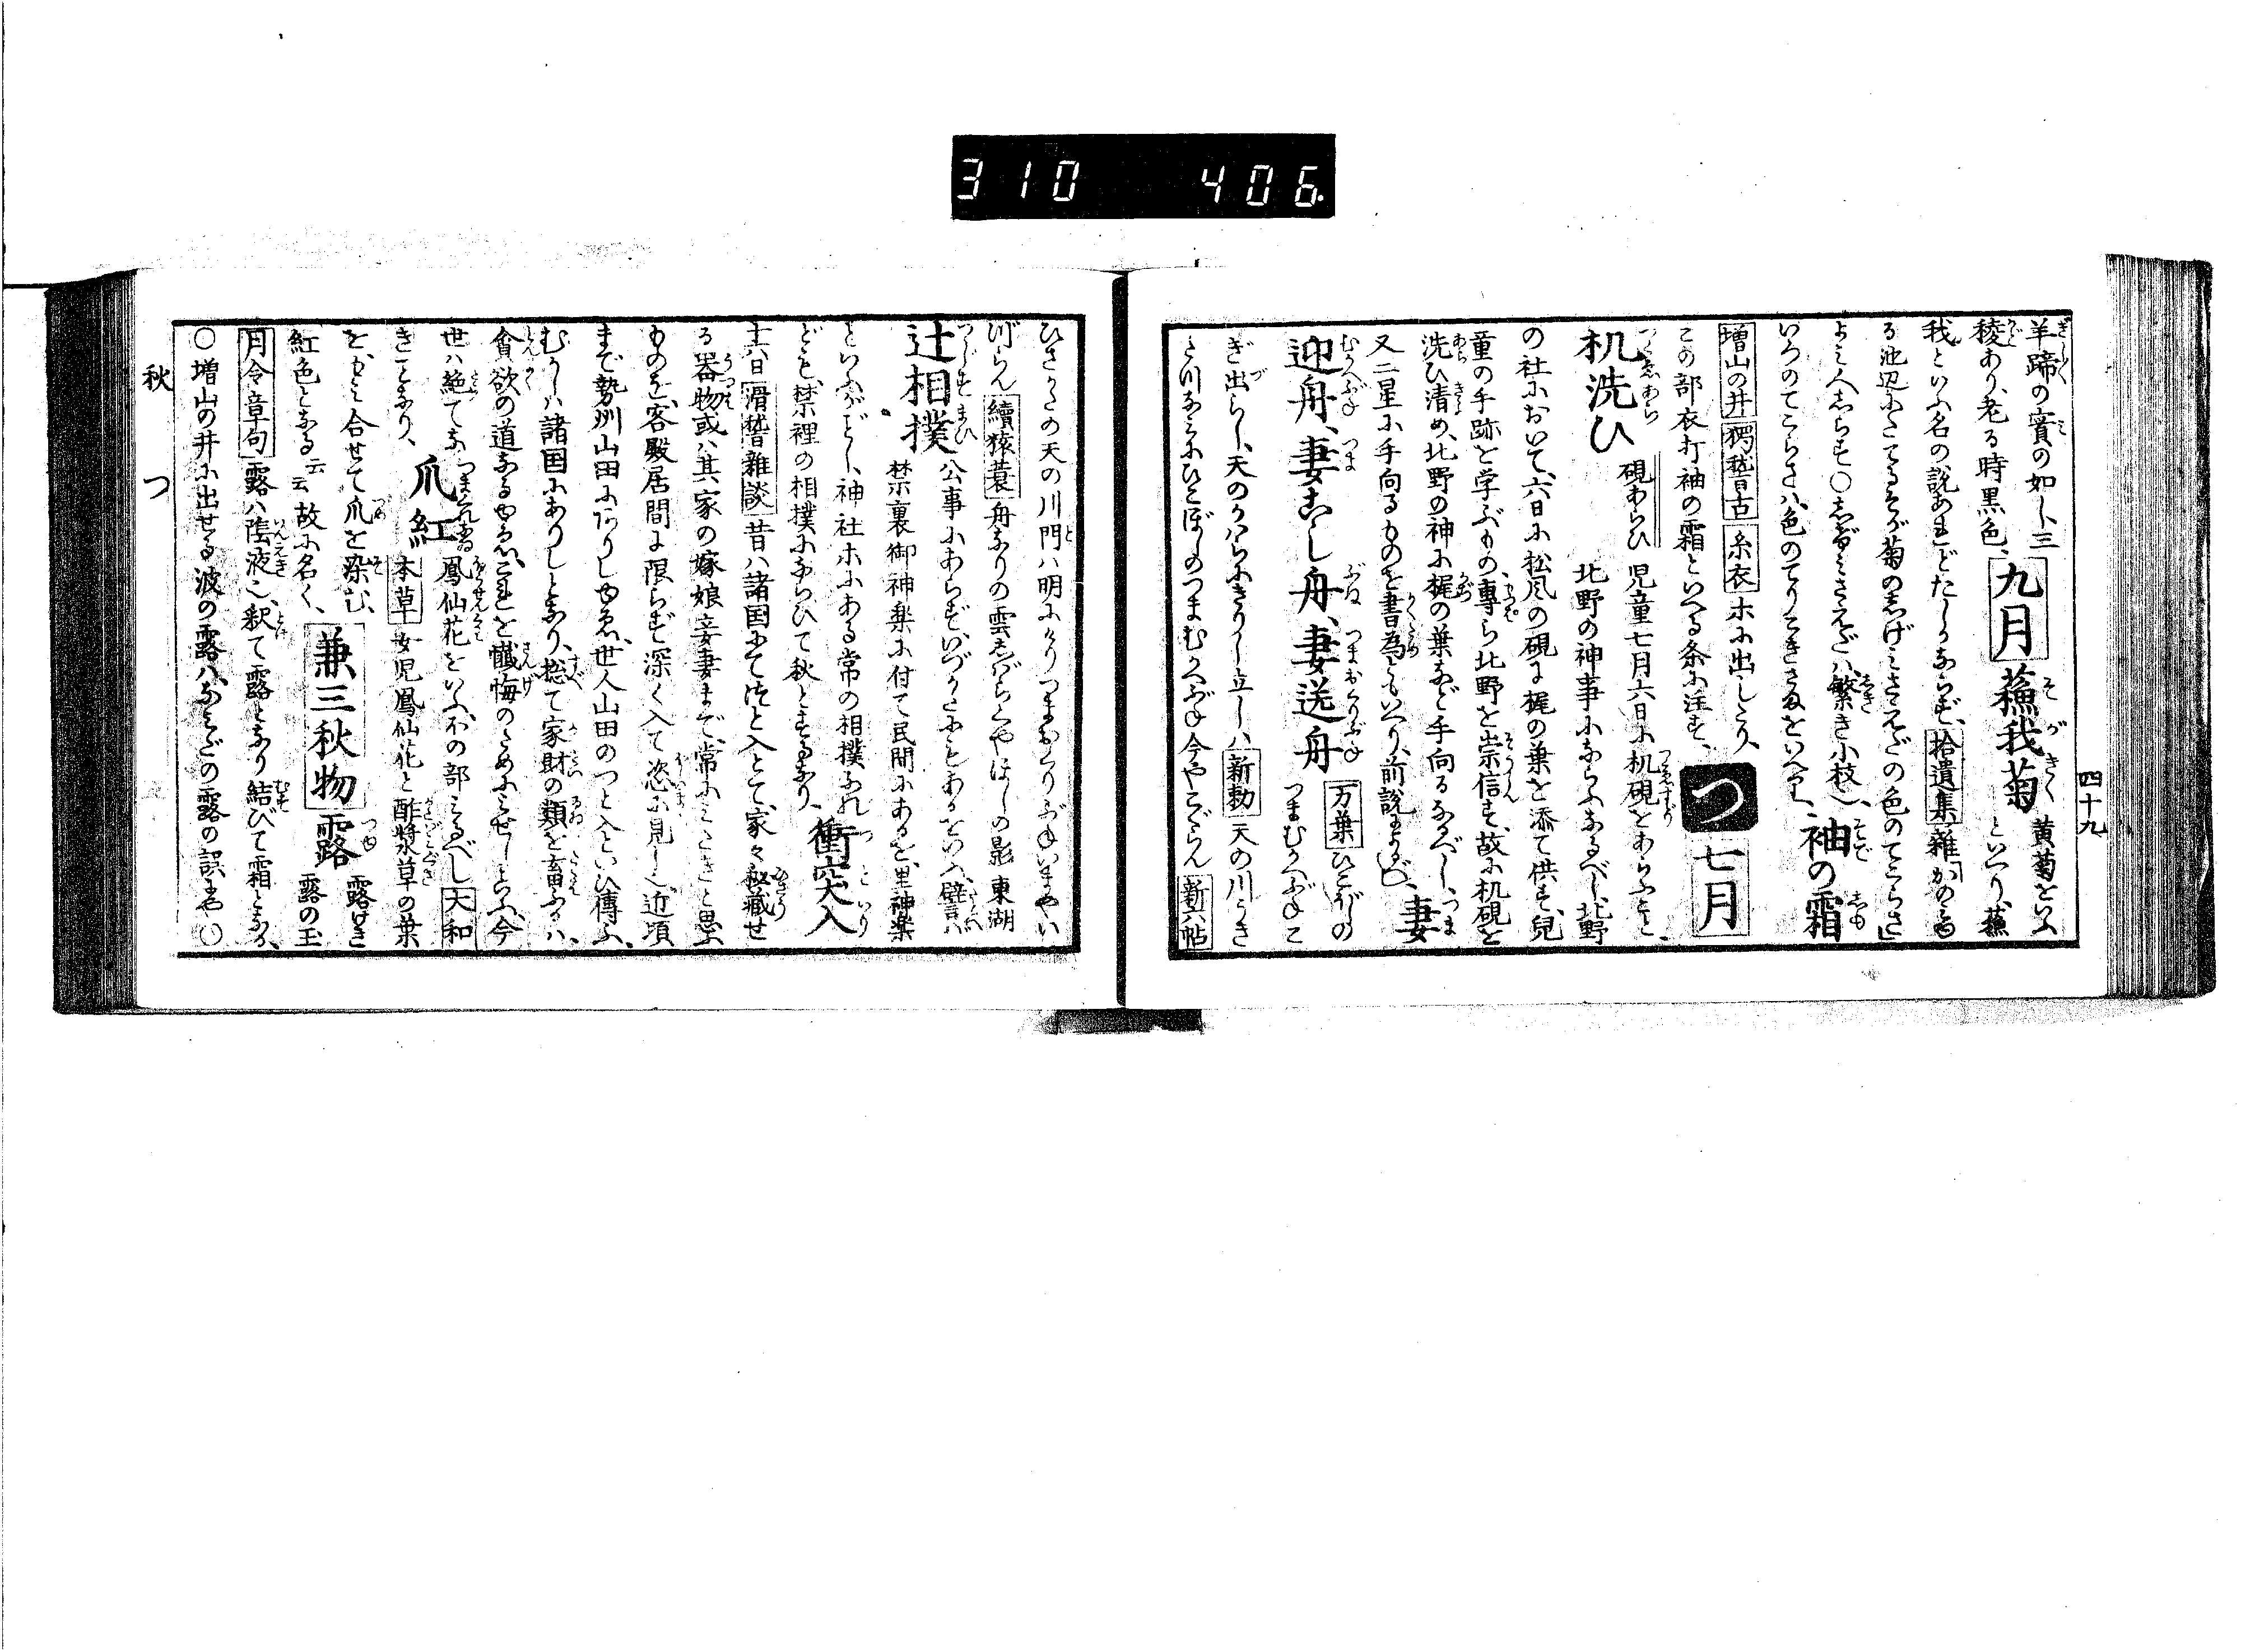 310 406.
四十九
羊蹄の實の如し、三
稜あり、老る時黒色、 九月 蕪我菊 黄菊をいふ
といへり、蕪
我といふ名の説あれどたしかならず、拾遺集 雜 かの
る池辺にたてるそが菊のしげみさえだの色のてこらさ」
よみ人しらず〇しげみさえだハ、繁き小枝
いろのてこらさハ、色のてりこき 袖の霜
増山の井 糸衣 ホに出したり、
この部衣打袖の霜といへる条に注す、 つ 七月
机洗ひ 硯あらひ 児童七月六日に机硯をあらふこと、
北野の神事にならふなるべし、北野
の社において、六日に松風の硯に梶の葉を添て供ず、兒
童の手跡を学ぶもの、專ら北野を崇信す、故に机硯を
洗ひ清め、北野の神に梶の葉など手向るなるべし、
又二星に手向るものを書為ともいへり、前説 妻
迎舟、妻こし舟、妻送舟 万葉 ひこぼしの
つまむかへぶね こ
ぎ出らし、天のかはらにきりし立しハ 新勅 天の川うき
ひこぼしのつまむかへぶね今やこぐらん 新六帖
ひさかたの天の川門ハ明にけりつまおくりぶねいまやい
づらん 續猿蓑 舟なりの雲しばらくやほしの影 東湖
辻相撲 公事にあらず、いづかたにもあるをいふ、譬ハ
禁裏御神楽に付て民間にあるを、里神楽
といふがごとし、神社ホにある常の相撲なれ
ども、禁裡の相撲にならひて秋とするなり、 衝突入
十六日 滑稽雜談 昔ハ諸国にてつと入とて、家々秘藏せ
る器物或ハ其家の嫁娘妾妻まで、常にみたきと思ふ
ものを、客殿居間に限らず深く入て恣に見し、近頃
まで勢州山田にありしゆゑ、世人山田のつと入といひ傳ふ、
むかしハ諸国にありしとなり、惣て家財の類を畜ふるハ、
貪欲の道なるゆゑ、これを懺悔のためにみせしとなふ、今
世ハ絶てな
きことなり、 爪紅 鳳仙花をいふ、ホの部みるべし 大和
本草 女児鳳仙花と酢漿草の葉
を、もみ合せて爪を染む、
紅色となる云云故に名く、 兼三秋物 露 露けき
露の玉
月令章句 露ハ陰液、釈て露となり結びて霜となる、
〇増山の井に出せる波の露ハ、なみだの露の誤にや〇
秋 つ